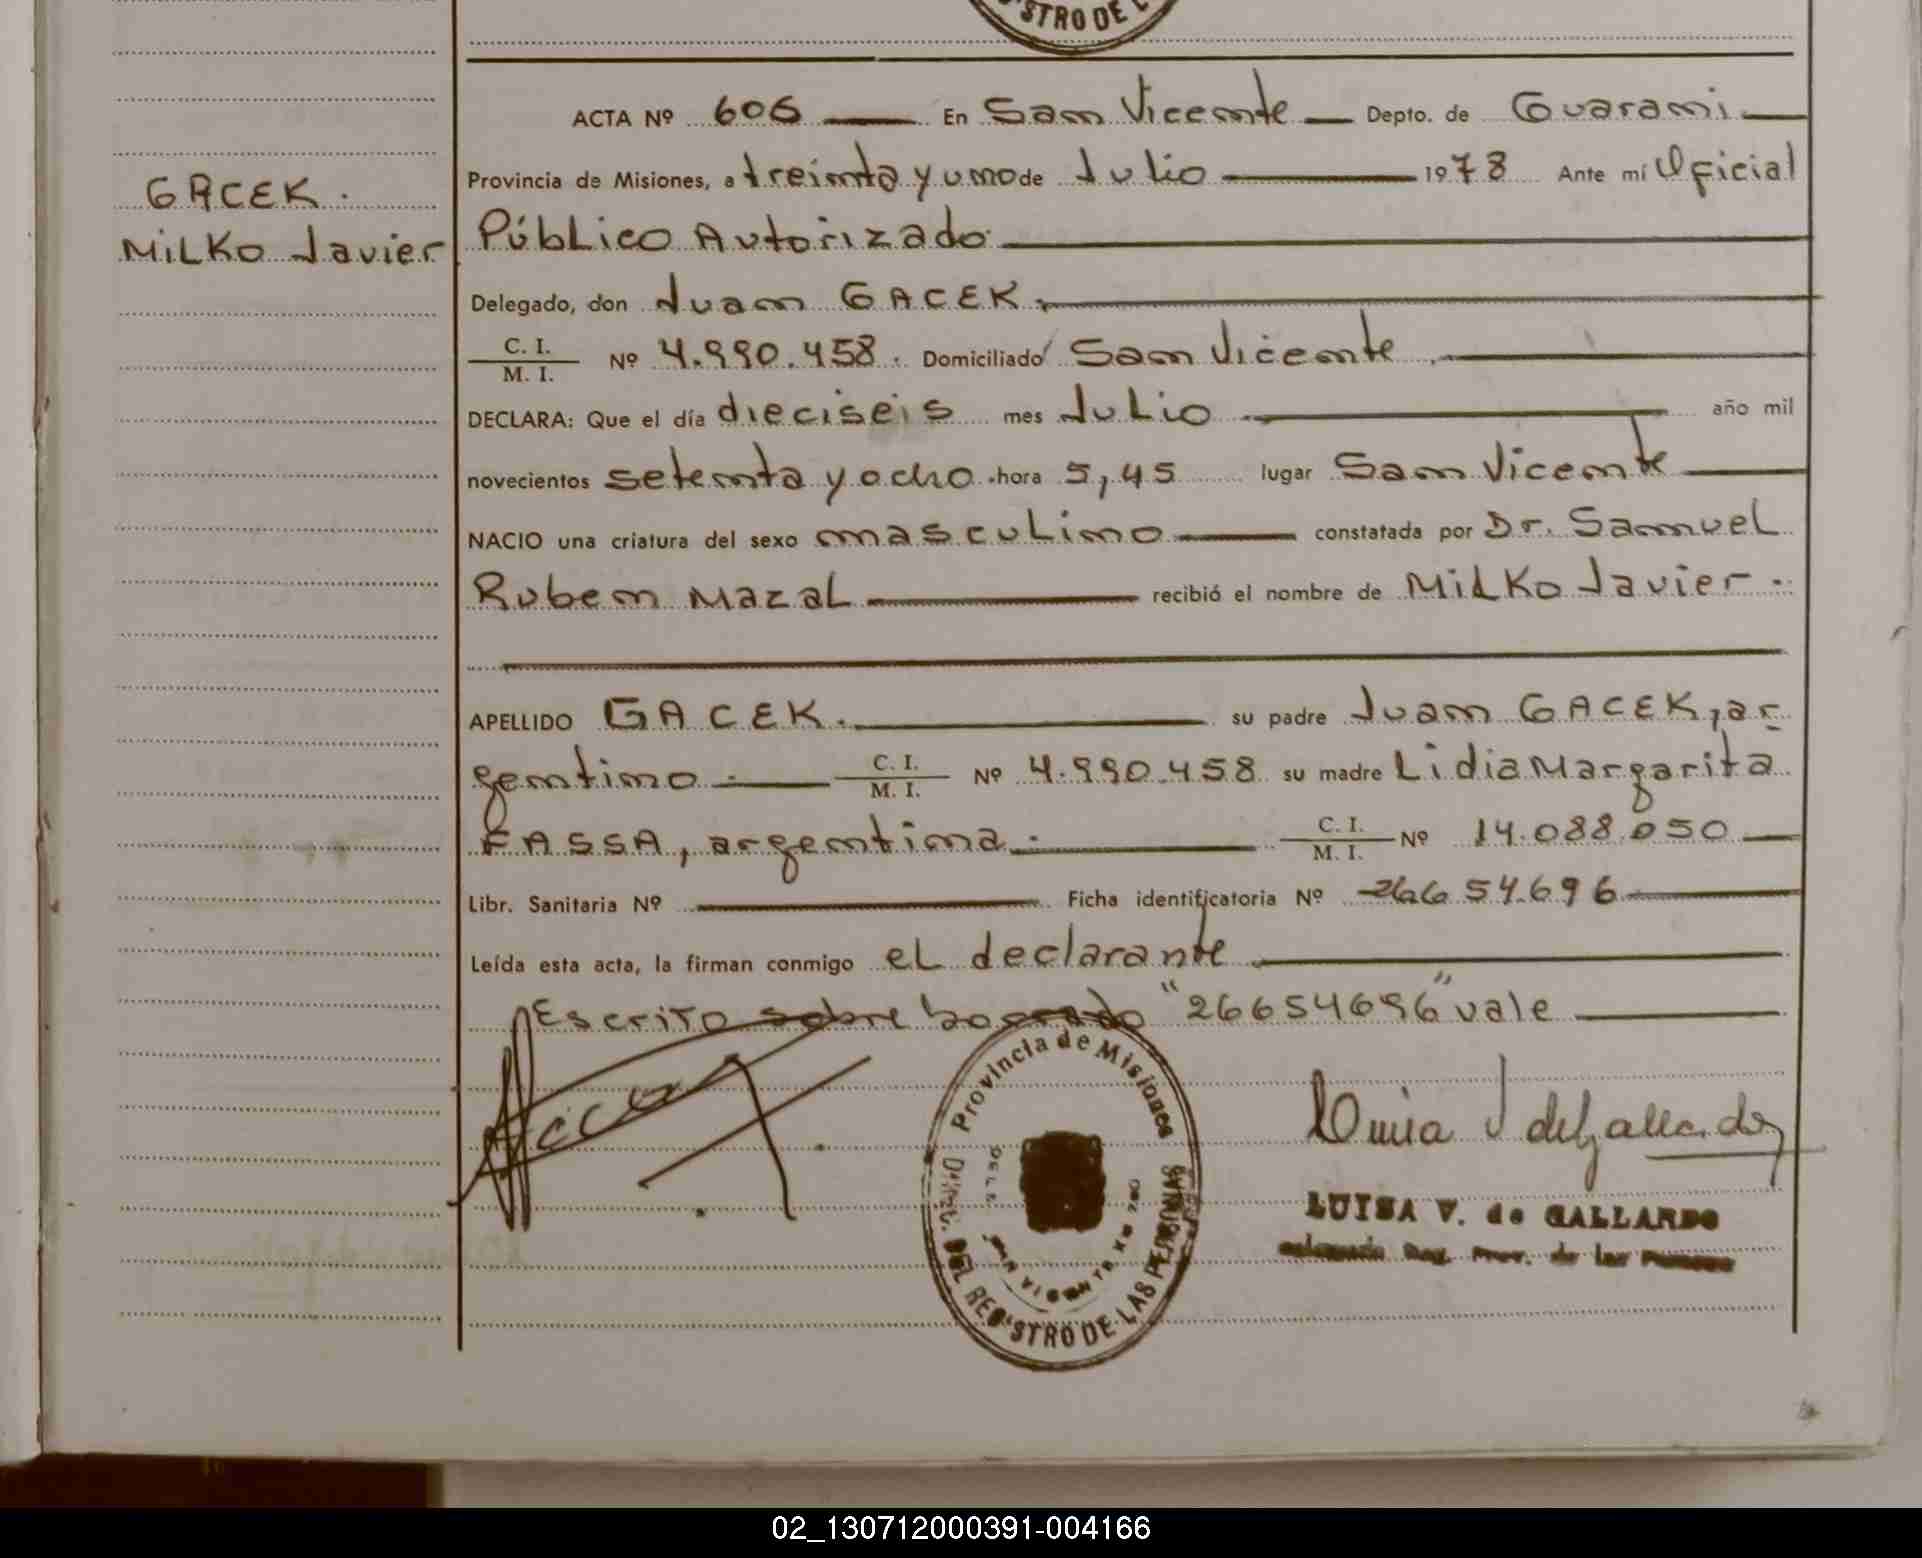 STRO DE L
ACTA Nº 606 En San Vicente Depto. de Guarani
Provincia de Misiones, a treinta y uno de Julio 1978 Ante mí Oficial
GACEK.
Público Autorizado
MiLKO Javier
Delegado, don Juan GACEK.
C. I.
M. I.
Nº 4.990.458. Domiciliado San Vicente.
DECLARA: Que el día dieciseis mes Julio año mil
novecientos setenta y ocho hora 5,45 lugar San Vicente
NACIO una criatura del sexo masculino constatada por Dr. Samuel
Ruben Mazal recibió el nombre de Milko Javier.
APELLIDO GACEK. su padre Juan GACEK, ar
gentino. C. I.
M. I.
Nº 4.990.458 su madre Lidia Margarita
FASSA, argentina. C. I.
M. I.
Nº 14.088.050
Libr. Sanitaria Nº Ficha identificatoria Nº 26654.696
Leída esta acta, la firman conmigo el declarante
Escrito sobre borrado "26654696" vale
Provincia de Misiones
DEL REGISTRO DE LAS PERSONAS
LUISA V. de GALLARDO
Reg. Prov. de las Personas
02_130712000391-004166